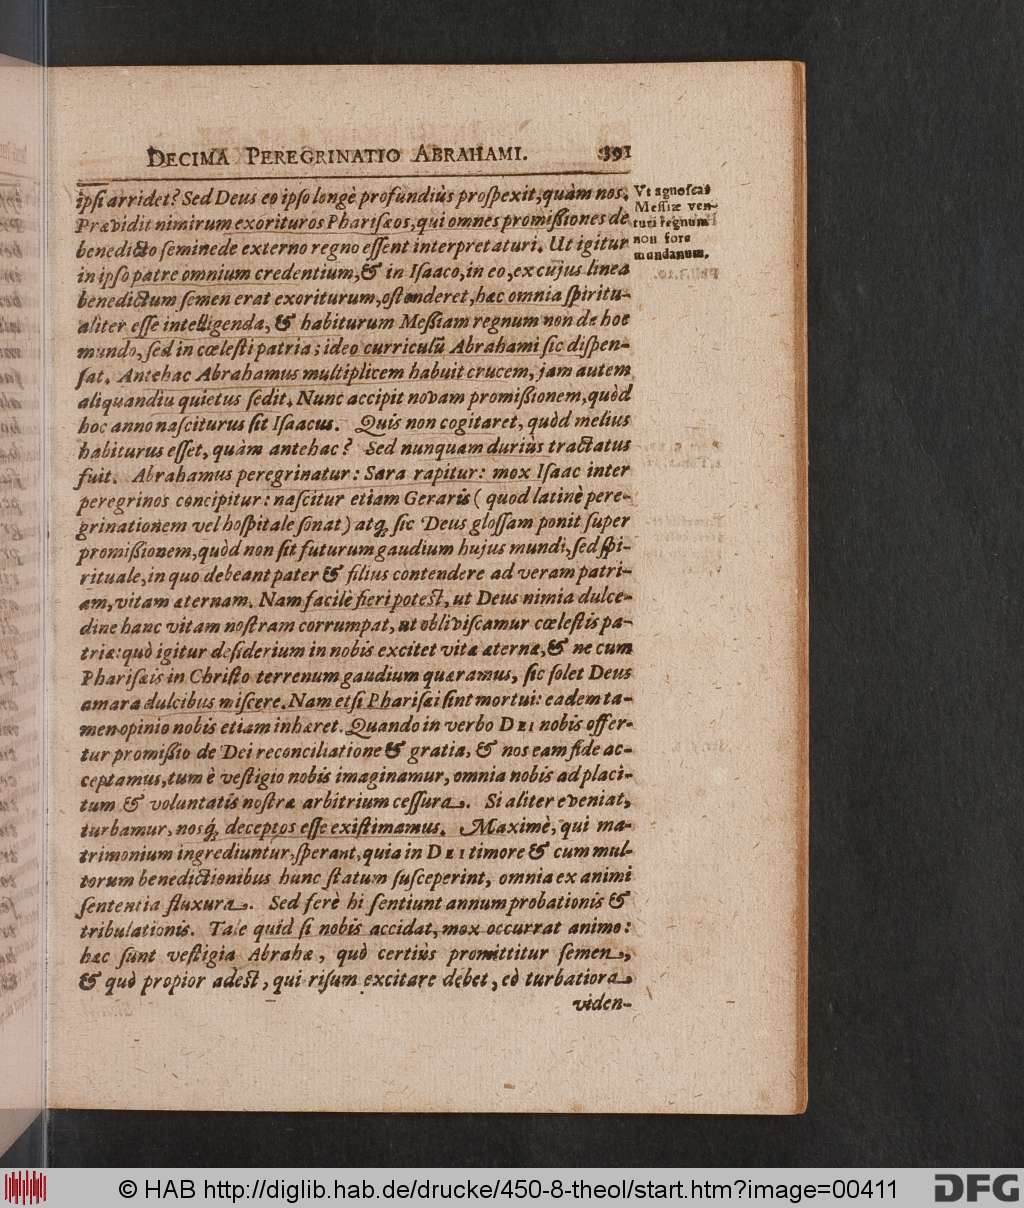 DECIMA PEREGRINATIO ABRAHAMI. 391
ipſi arridet? Sed Deus eo ipſo longè profundiùs proſpexit, quàm nos.
Prævidit nimirum exorituros Phariſæos, qui omnes promiſſiones de
benedicto ſemine de externo regno eſſent interpretaturi. Ut igitur
in ipſo patre omnium credentium, & in Iſaaco, in eo, ex cujus linea
benedictum ſemen erat exoriturum, oſtenderet, hæc omnia ſpiritu-
aliter eſſe intelligenda, & habiturum Meſſiam regnum non de hoc
mundo, ſed in cœleſti patria; ideo curriculū Abrahami ſic diſpen-
ſat. Antehac Abrahamus multiplicem habuit crucem, jam autem
aliquandiu quietus ſedit. Nunc accipit novam promiſſionem, quòd
hoc anno naſciturus ſit Iſaacus. Quis non cogitaret, quòd melius
habiturus eſſet, quàm antehac? Sed nunquam duriùs tractatus
fuit. Abrahamus peregrinatur: Sara rapitur: mox Iſaac inter
peregrinos concipitur: naſcitur etiam Geraris (quod latinè pere-
grinationem vel hoſpitale ſonat) atq́; ſic Deus gloſſam ponit ſuper
promiſſionem, quòd non ſit futurum gaudium hujus mundi, ſed ſpi-
rituale, in quo debeant pater & filius contendere ad veram patri-
am, vitam æternam. Nam facilè fieri poteſt, ut Deus nimia dulce-
dine hanc vitam noſtram corrumpat, ut obliviſcamur cœleſtis pa-
triæ: quò igitur deſiderium in nobis excitet vitæ æternæ, & ne cum
Phariſæis in Chriſto terrenum gaudium quæramus, ſic ſolet Deus
amara dulcibus miſcere. Nam etſi Phariſæi ſint mortui: eadem ta-
men opinio nobis etiam inhæret. Quando in verbo DEI nobis offer-
tur promiſſio de Dei reconciliatione & gratia, & nos eam fide ac-
ceptamus, tum è veſtigio nobis imaginamur, omnia nobis ad placi-
tum & voluntatis noſtræ arbitrium ceſſura. Si aliter eveniat,
turbamur, nosq́; deceptos eſſe exiſtimamus. Maximè, qui ma-
trimonium ingrediuntur, ſperant, quia in DEI timore & cum mul-
torum benedictionibus hunc ſtatum ſuſceperint, omnia ex animi
ſententia fluxura. Sed ferè hi ſentiunt annum probationis &
tribulationis. Tale quid ſi nobis accidat, mox occurrat animo:
hæc ſunt veſtigia Abrahæ, quò certiùs promittitur ſemen,
& quò propior adeſt, qui riſum excitare debet, eò turbatiora
viden-
Vt agnoſcat
Meſſiæ ven-
turi regnum
non fore
mundanum.
© HAB http://diglib.hab.de/drucke/450-8-theol/start.htm?image=00411
DFG